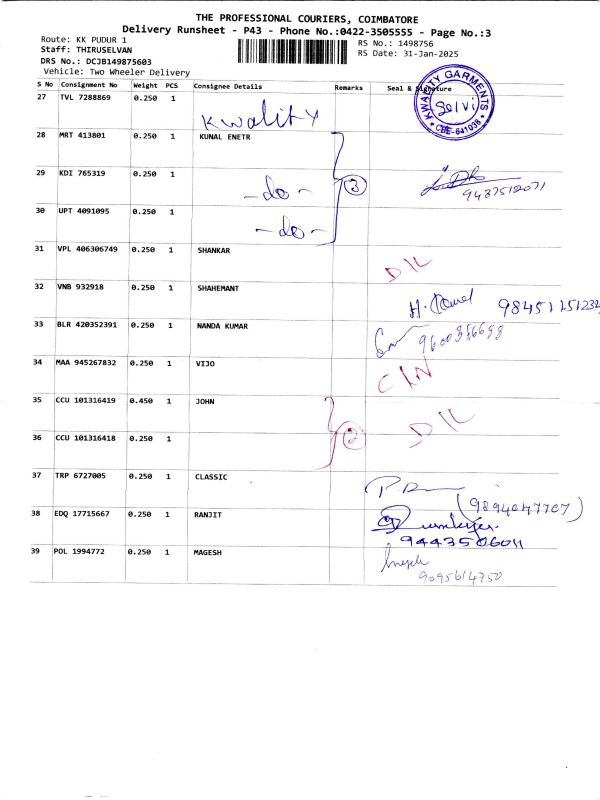 THE PROFESSIONAL COURIERS, COIMBATORE
Delivery Runsheet - P43 - Phone No.:0422-3505555 - Page No.:3
Route: KK PUDUR 1
RS No.: 1498756
Staff: THIRUSELVAN
RS Date: 31-Jan-2025
DRS No.: DCJB149875603
Vehicle: Two Wheeler Delivery
S No Consignment No Weight PCS Consignee Details Remarks Seal & Signature
27 TVL 7288869 0.250 1 Kwality
KWALITY GARMENTS
Selvi
CBE-641038
28 MRT 413801 0.250 1 KUNAL ENETR
29 KDI 765319 0.250 1 -do- 3
9487512071
30 UPT 4091095 0.250 1 -do-
31 VPL 406306749 0.250 1 SHANKAR D/L
32 VNB 932918 0.250 1 SHAHEMANT
33 BLR 420352391 0.250 1 NANDA KUMAR
34 MAA 945267832 0.250 1 VIJO C/N
35 CCU 101316419 0.450 1 JOHN D/L
36 CCU 101316418 0.250 1 2
37 TRP 6727005 0.250 1 CLASSIC
(9894047707)
38 EDQ 17715667 0.250 1 RANJIT
9443506011
39 POL 1994772 0.250 1 MAGESH
9095614750